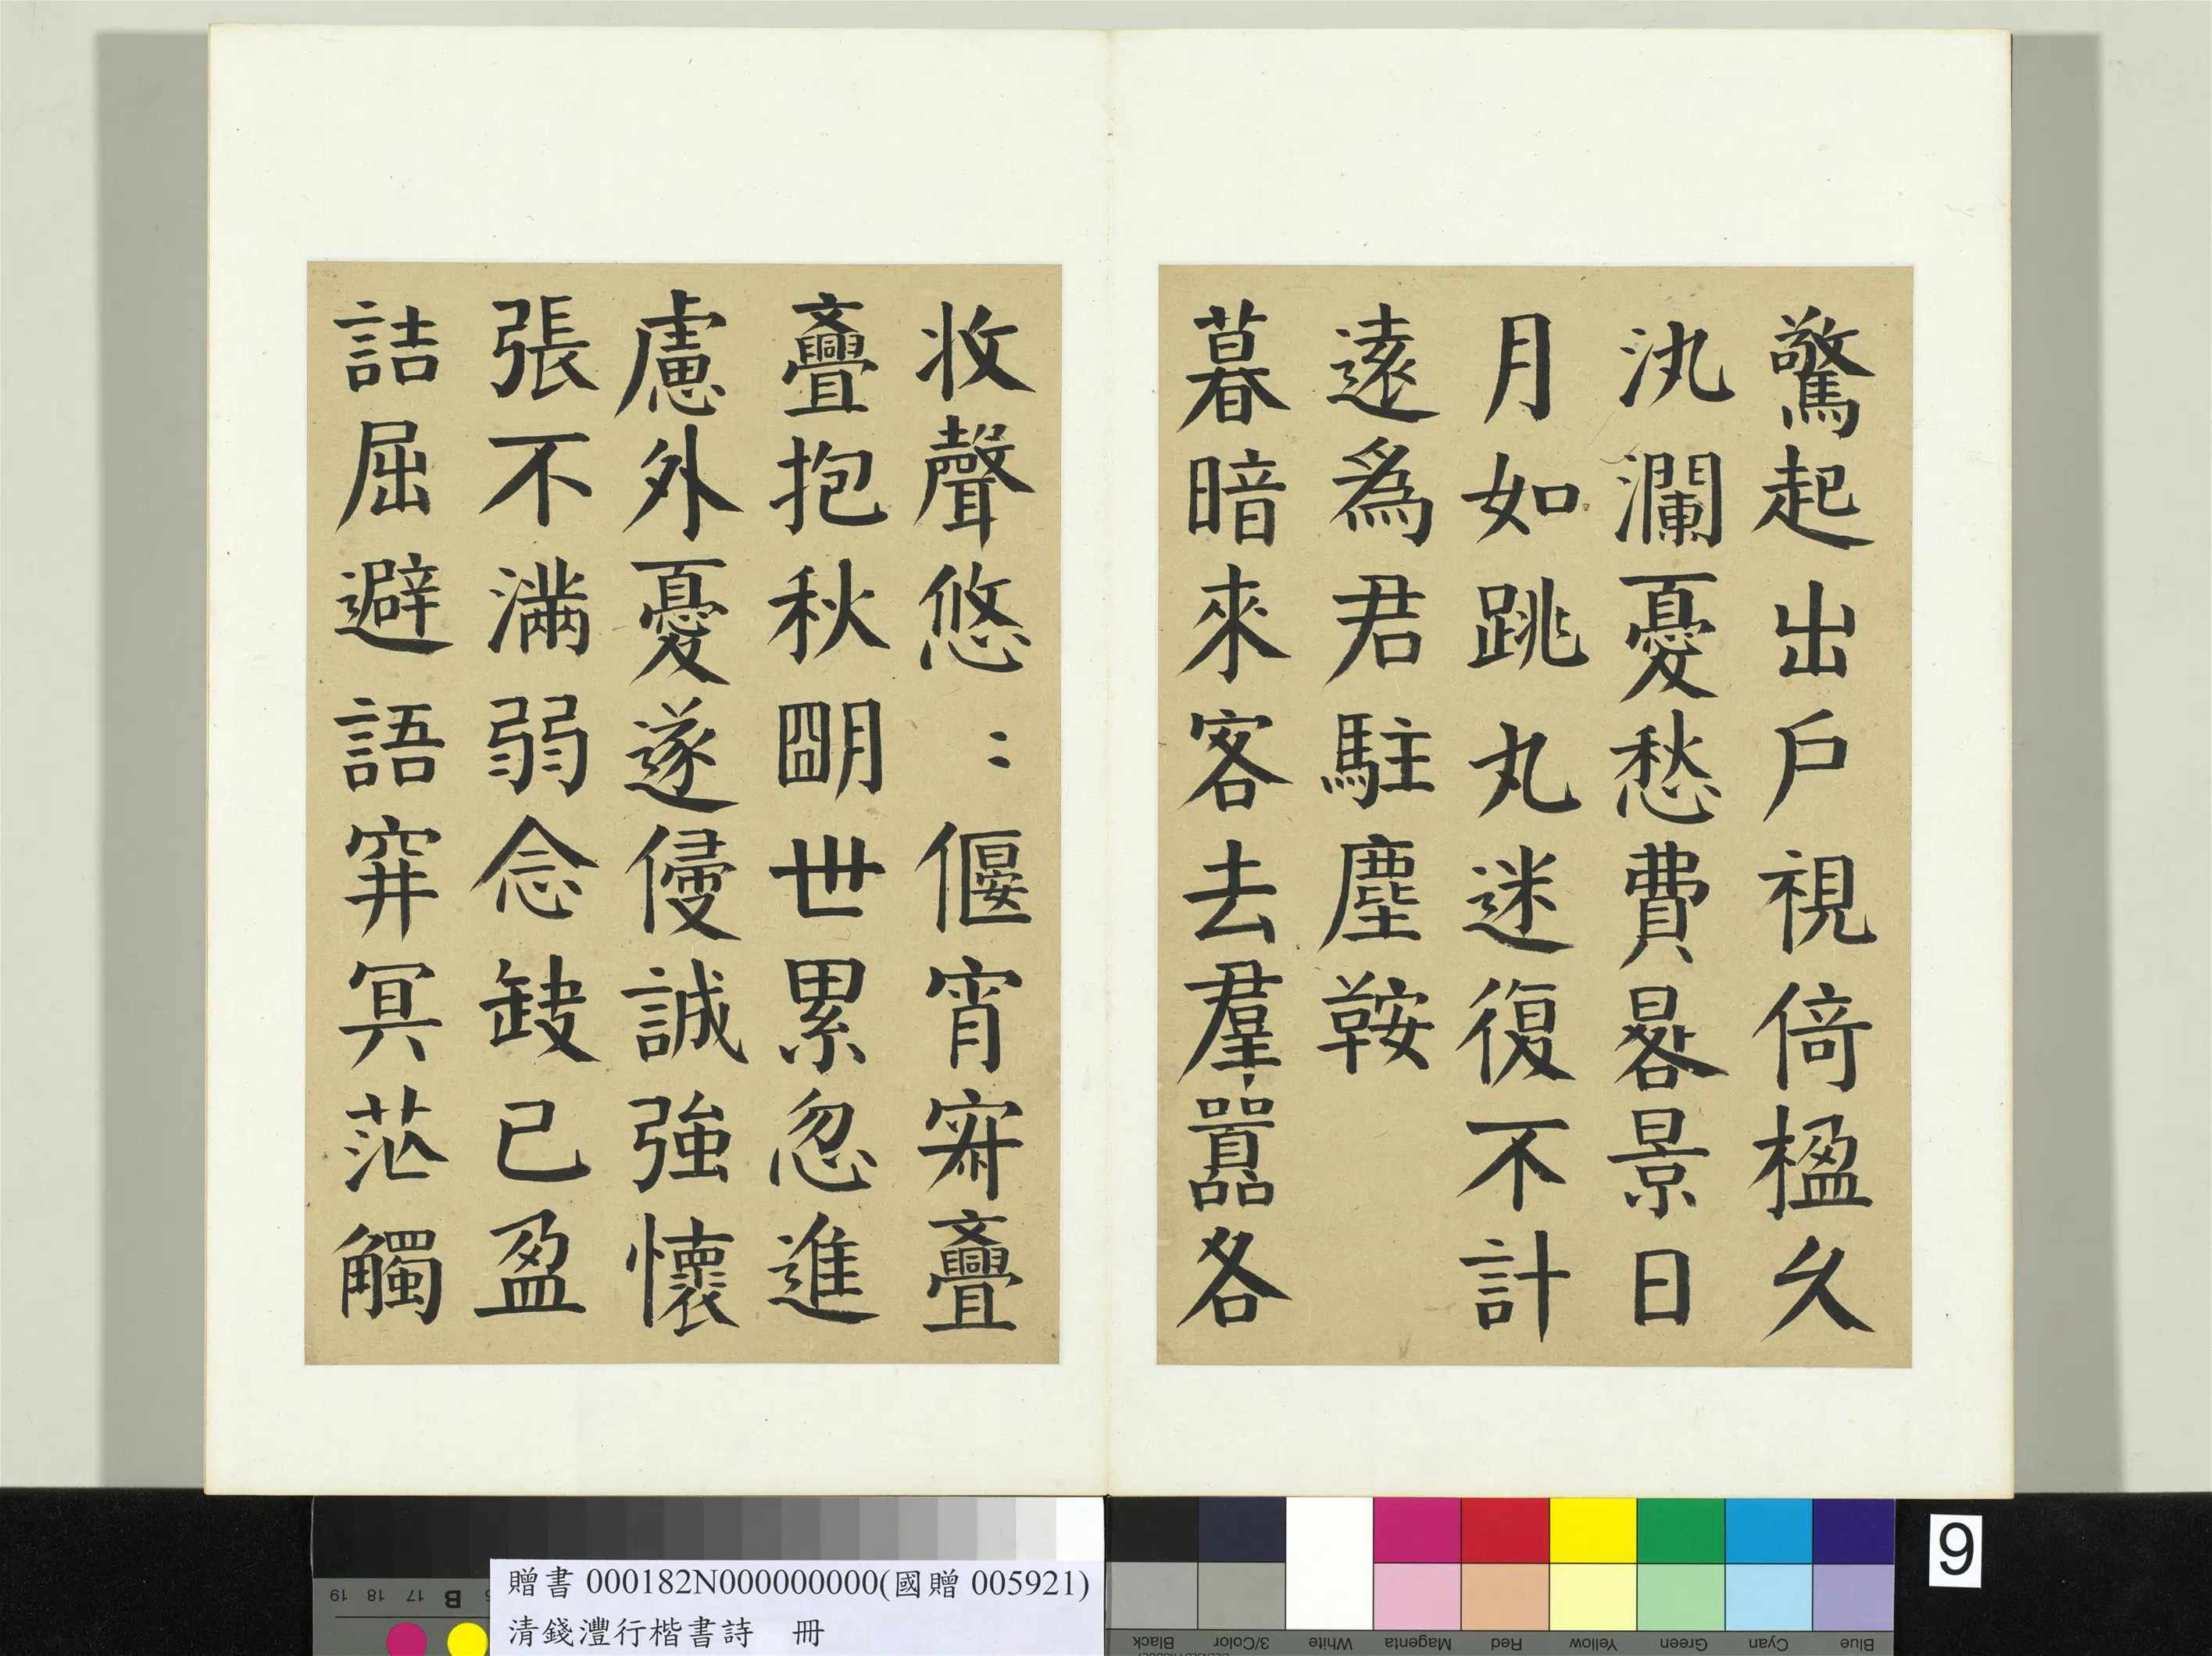 驚起出戶視倚楹久
汍瀾憂愁費晷景日
月如跳丸迷復不計
遠為君駐塵鞍
暮暗來客去羣囂各
收聲悠〻偃宵寐亹
亹抱秋朙世累忽進
慮外憂遂侵誠強懷
張不滿弱念缺已盈
詰屈避語穽冥茫觸
贈書 000182N000000000(國贈 005921)
清錢灃行楷書詩 冊
9
19 18 17 B
Black 3/Color White Magenta Red Yellow Green Cyan Blue